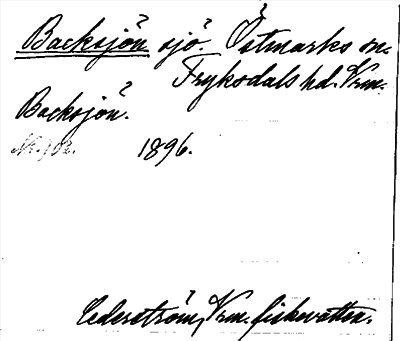 Backsjön sjö. Östmarks sn.
Fryksdals hd. Vrm.
Backsjön.
1896.
Cederström, Vrm. fiskevatten.